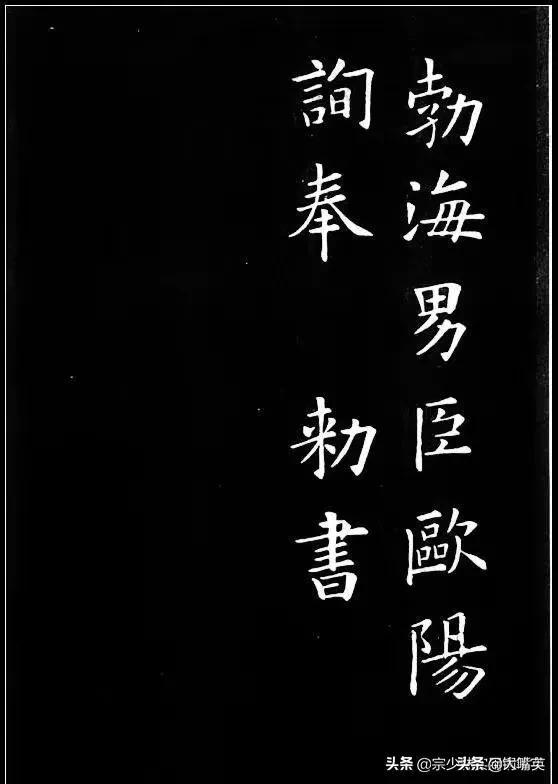 勃海男臣歐陽
詢奉 勑書
头条 @宗少头条 @大嘴英